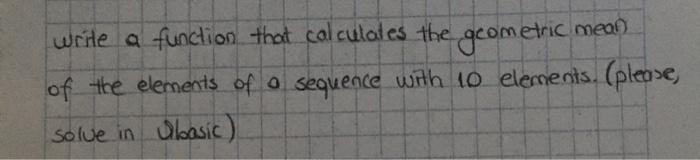 write a function that calculates the geometric mean
of the elements of a sequence with 10 elements. (please,
solve in Qbasic)